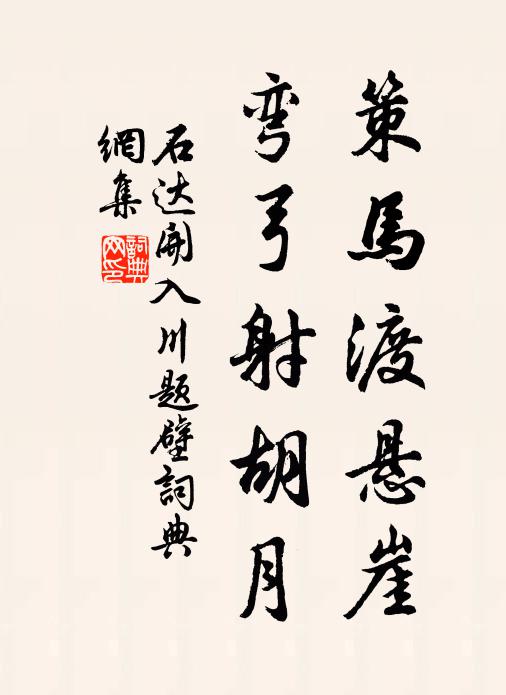 策馬渡悬崖
弯弓射胡月
石达開入川题壁詞典
網集
詞典网印